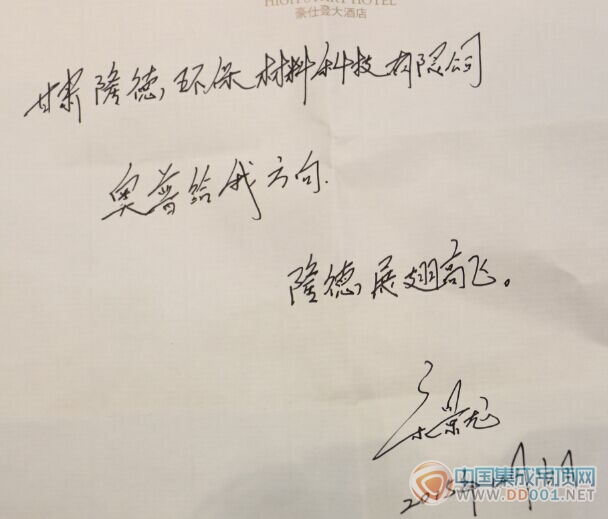 豪仕登大酒店
甘肃隆德环保材料科技有限公司
奥普给我方向.
隆德展翅高飞。
2015年
中国集成吊顶网
WWW.DD001.NET